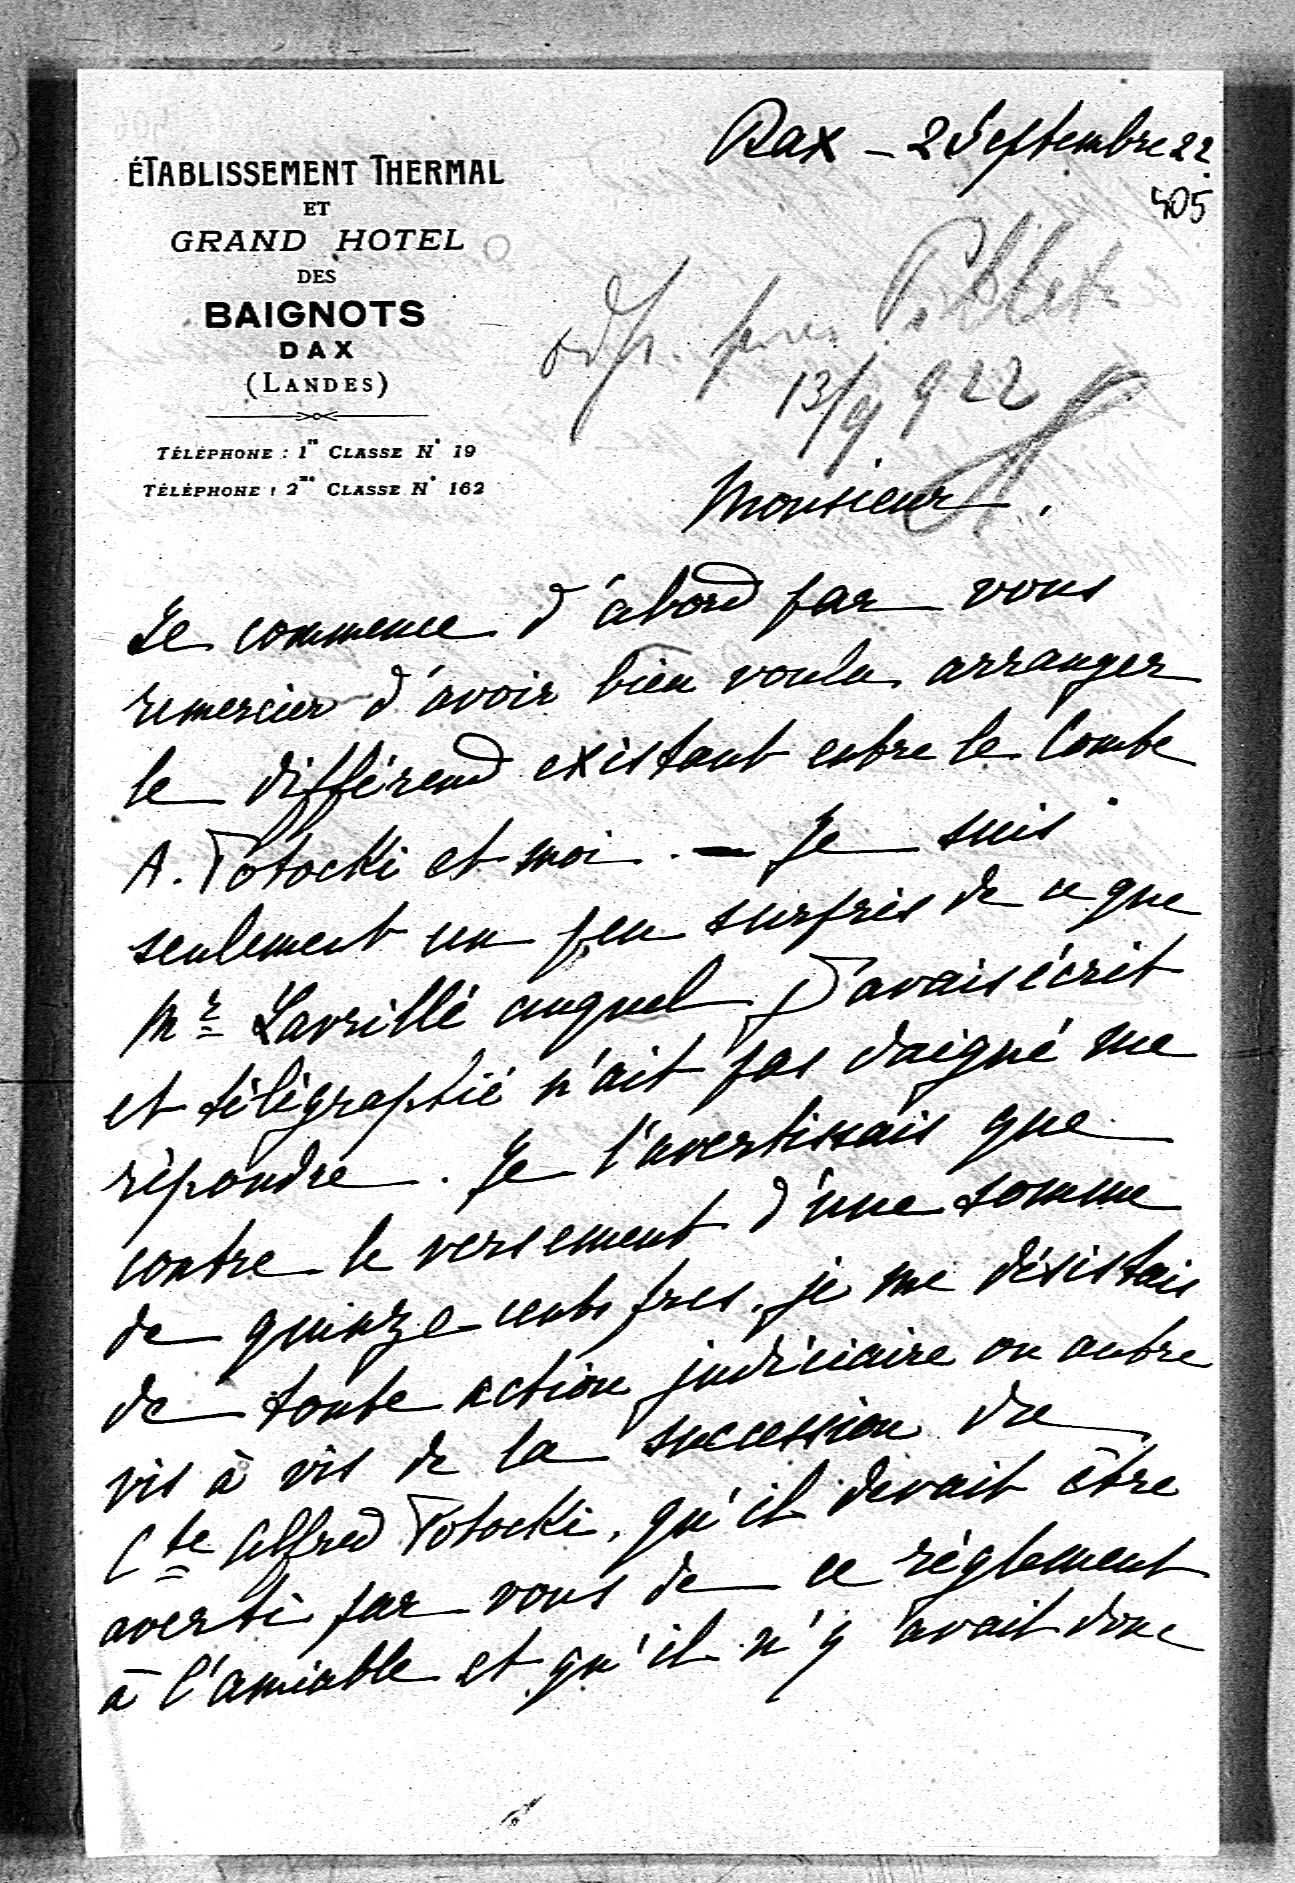 Dax – 2 Septembre 22
405
ÉTABLISSEMENT THERMAL
ET
GRAND HOTEL
DES
BAIGNOTS
DAX
(LANDES)
TÉLÉPHONE : 1re CLASSE N° 19
TÉLÉPHONE : 2me CLASSE N° 162
odp.
13/9 922
Monsieur.
Je commence d'abord par vous
remercier d'avoir bien voulu arranger
le différend existant entre le Comte
A. Potocki et moi. — Je suis
seulement un peu surpris de ce que
Mr Lavrillé auquel J'avais écrit
et télégraphié n'ait pas daigné me
répondre. Je l'avertissais que
contre le versement d'une somme
de quinze cents frcs. je me désistais
de toute action judiciaire ou autre
vis à vis de la succession du
Cte Alfred Potocki, qu'il devait être
averti par vous de ce règlement
à l'amiable et qu'il n'y avait donc